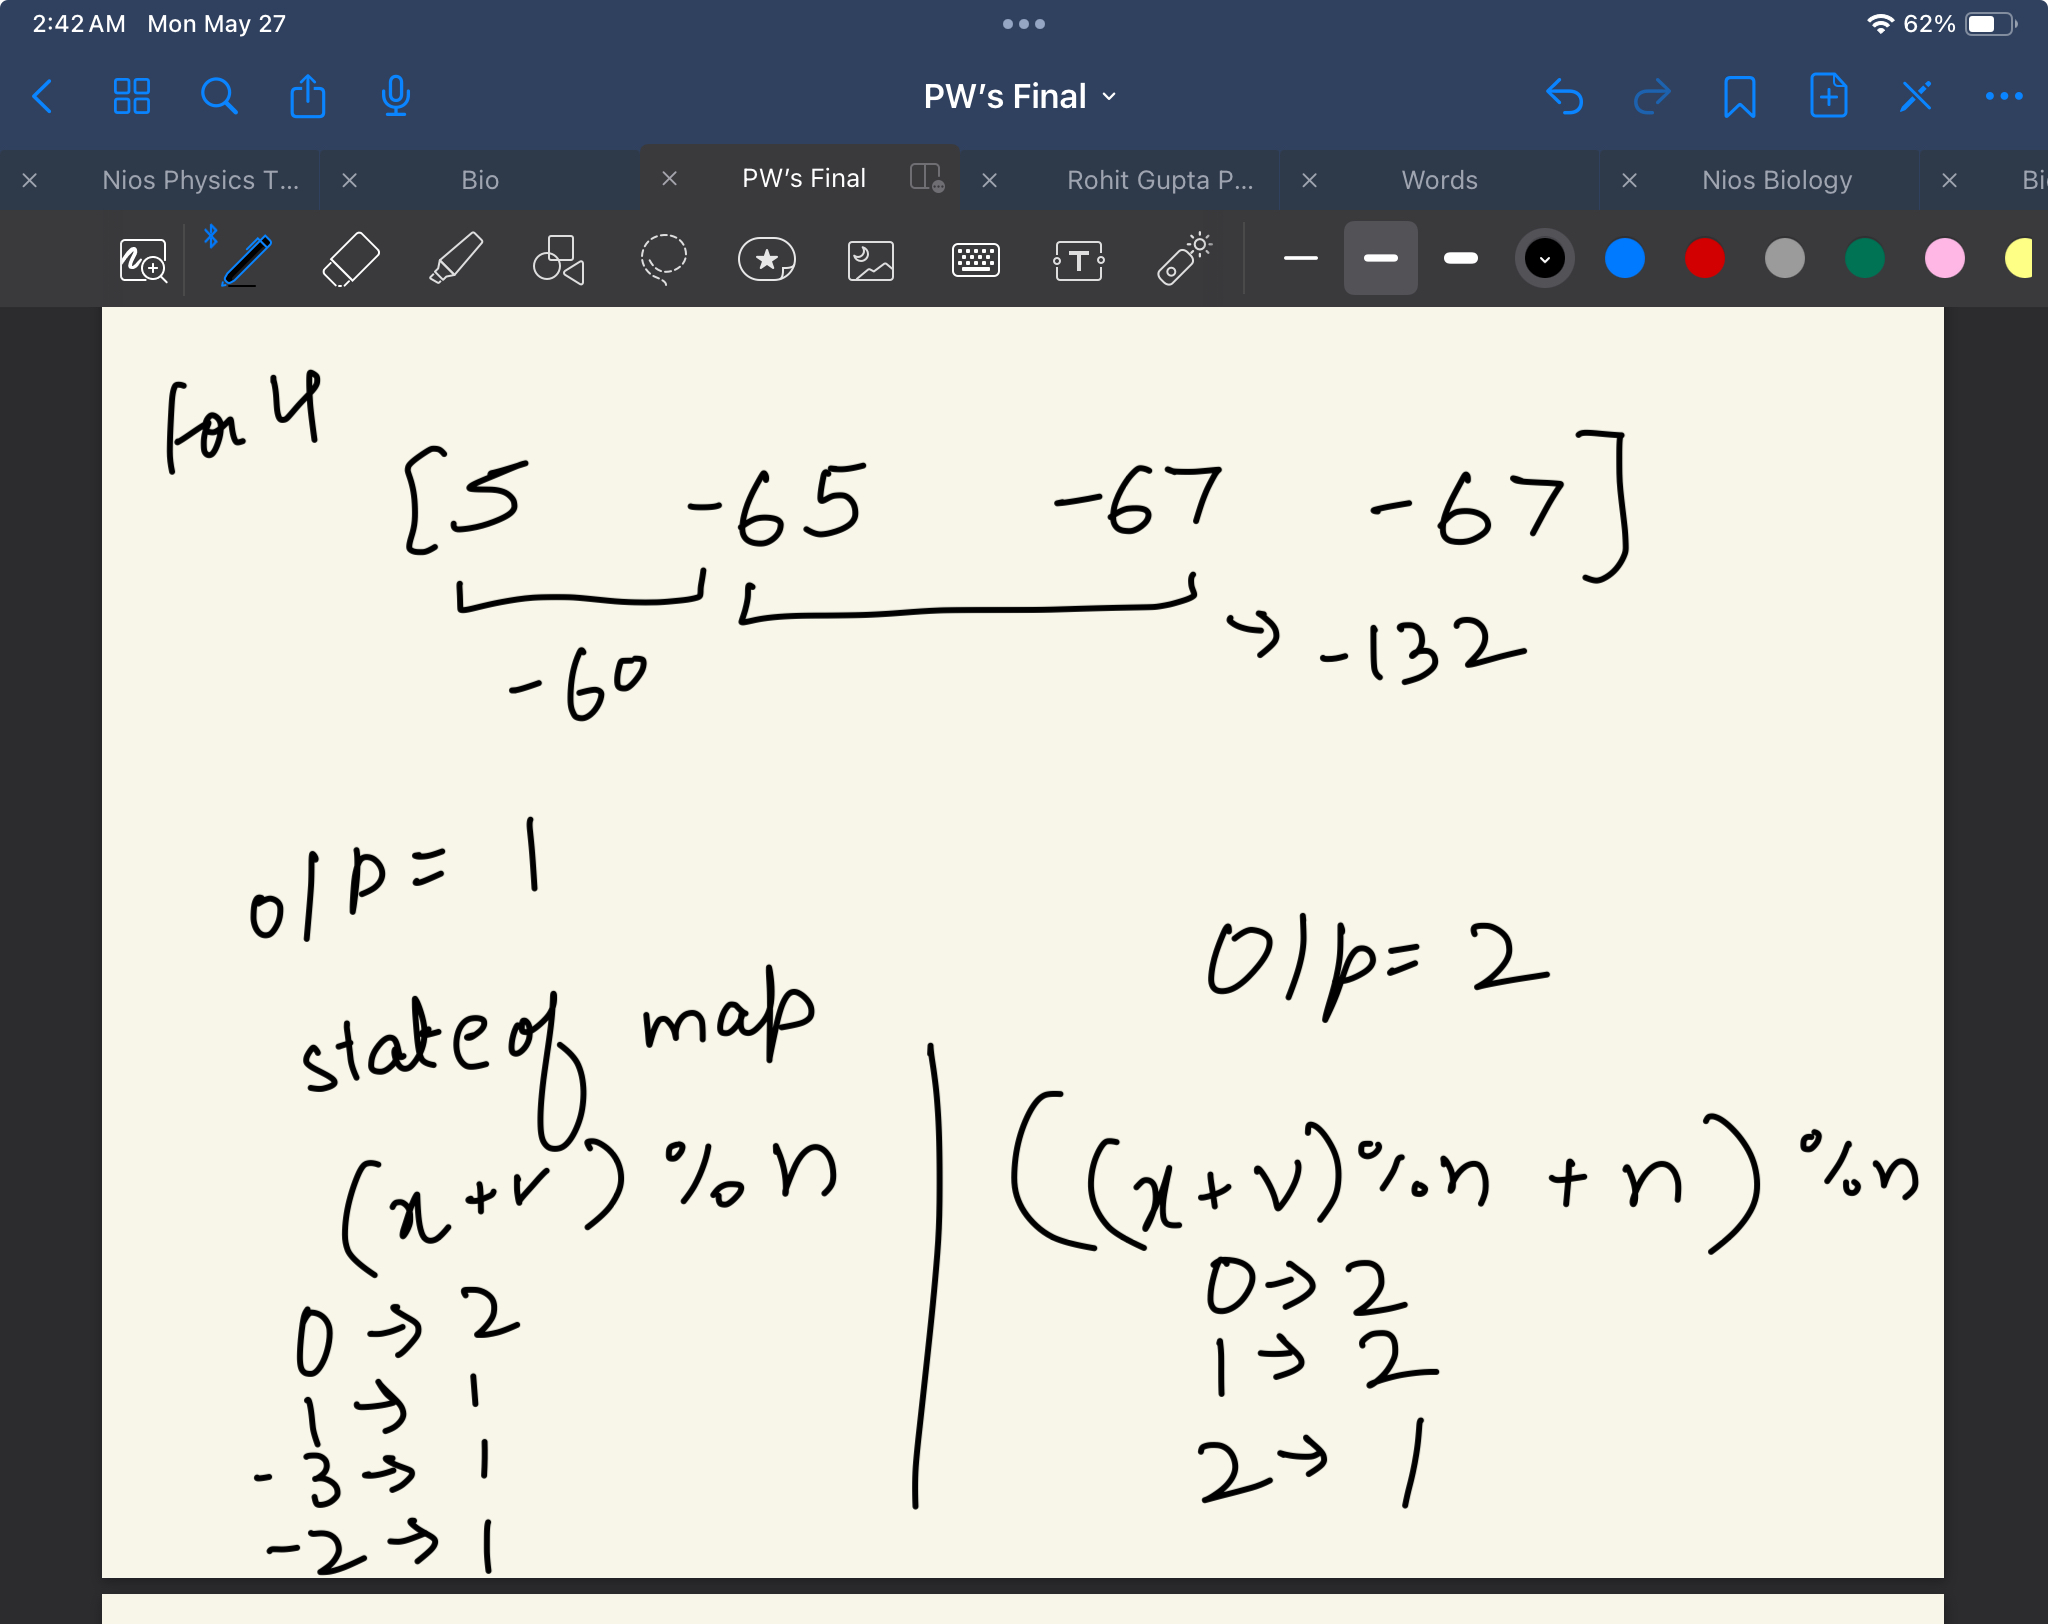 2:42 AM Mon May 27
62%
PW's Final
Nios Physics T...
Bio
PW's Final
Rohit Gupta P...
Words
Nios Biology
Bi
T
For 4
[5 -65 -67 -67]
-60
→ -132
o/p = 1
O/p = 2
state of map
(x+v) % n
((x+v)%n + n) %n
0 → 2
0 → 2
1 → 1
1 → 2
-3 → 1
2 → 1
-2 → 1